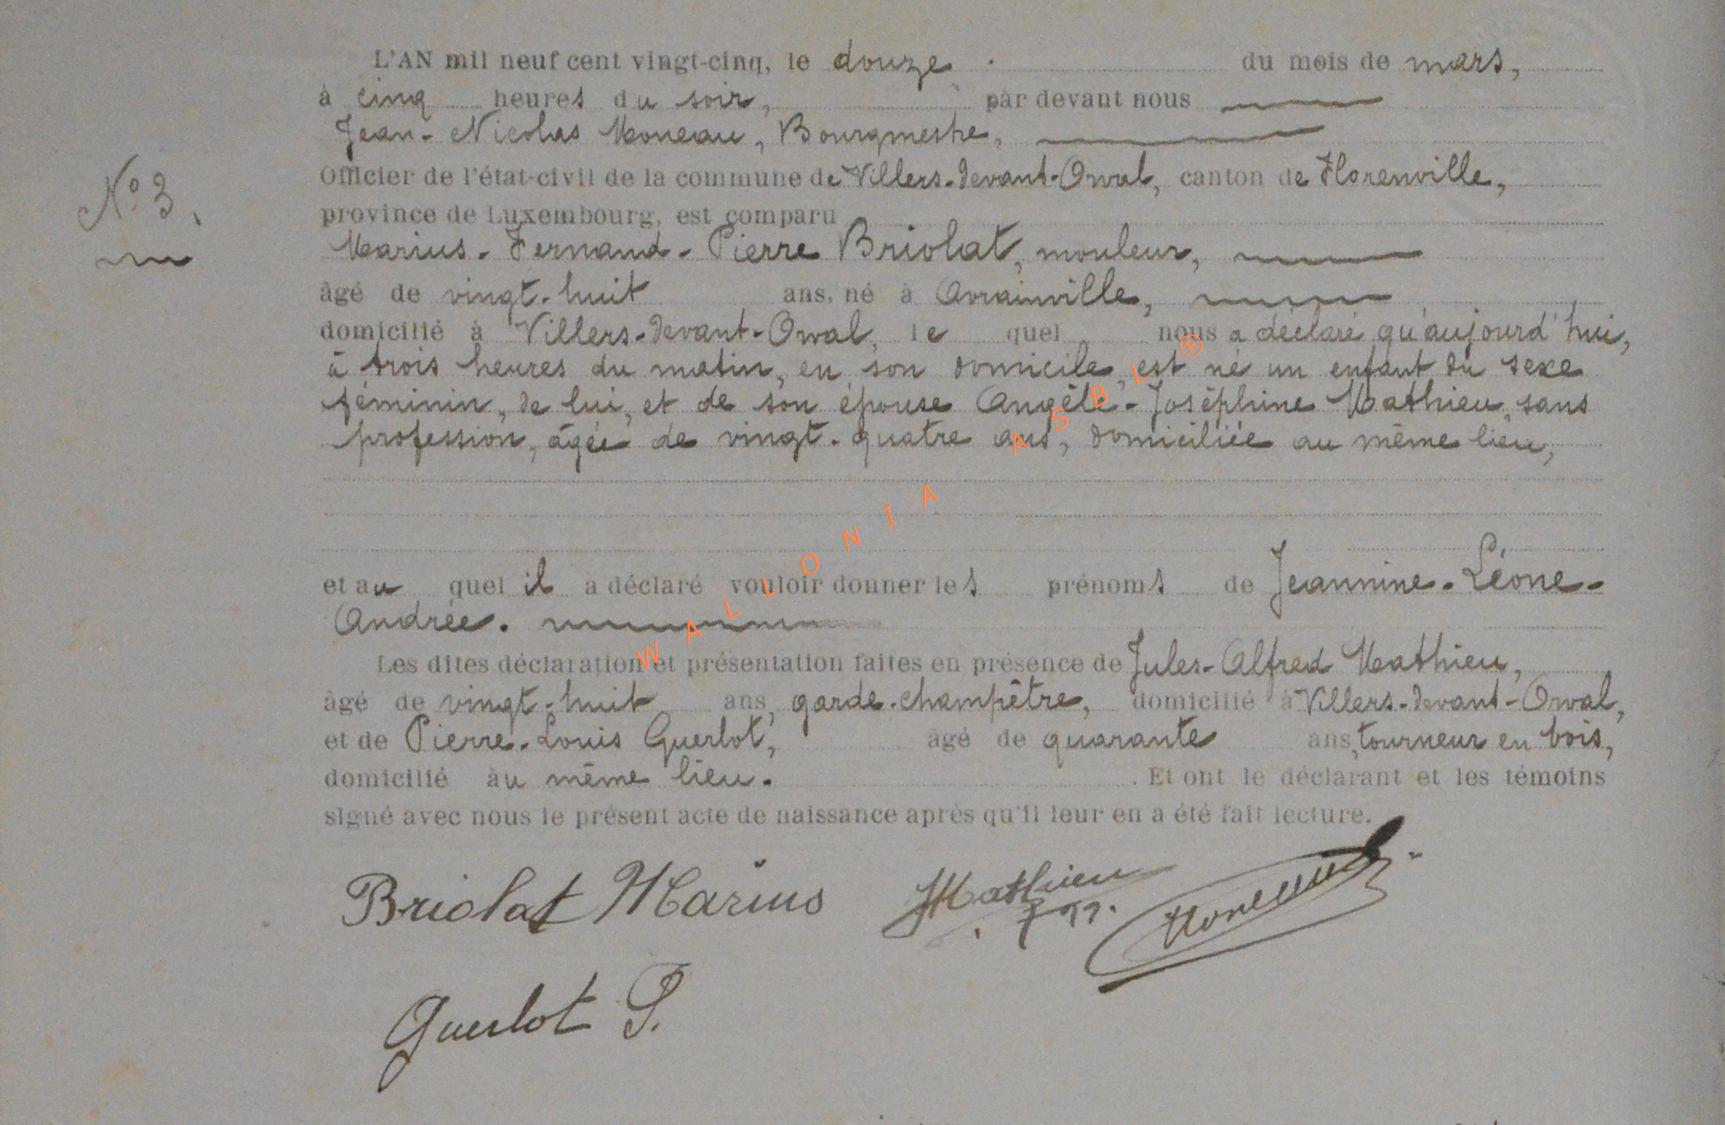 L'AN mil neuf cent vingt-cinq, le douze du mois de mars,
à cinq heures du soir, par devant nous
Jean-Nicolas Moneau, Bourgmestre,
Officier de l'état-civil de la commune de Villers-devant-Orval, canton de Florenville,
N° 3.
province de Luxembourg, est comparu
Marius-Fernand-Pierre Briolat, mouleur,
âgé de vingt-huit ans, né à Avrainville,
domicilié à Villers-devant-Orval, le quel nous a déclaré qu'aujourd'hui,
à trois heures du matin, en son domicile, est né un enfant du sexe
féminin, de lui, et de son épouse Angèle-Joséphine Mathieu, sans
profession, âgée de vingt-quatre ans, domiciliée au même lieu,
WALLONIA ASBL ®
et au quel il a déclaré vouloir donner les prénoms de Jeannine-Léone-
Andrée.
Les dites déclaration et présentation faites en présence de Jules-Alfred Mathieu,
âgé de vingt-huit ans, garde-champêtre, domicilié à Villers-devant-Orval,
et de Pierre-Louis Guerlot, âgé de quarante ans, tourneur en bois,
domicilié au même lieu. Et ont le déclarant et les témoins
signé avec nous le présent acte de naissance après qu'il leur en a été fait lecture.
Briolat Marius JMathieu Moneau
Guerlot P.